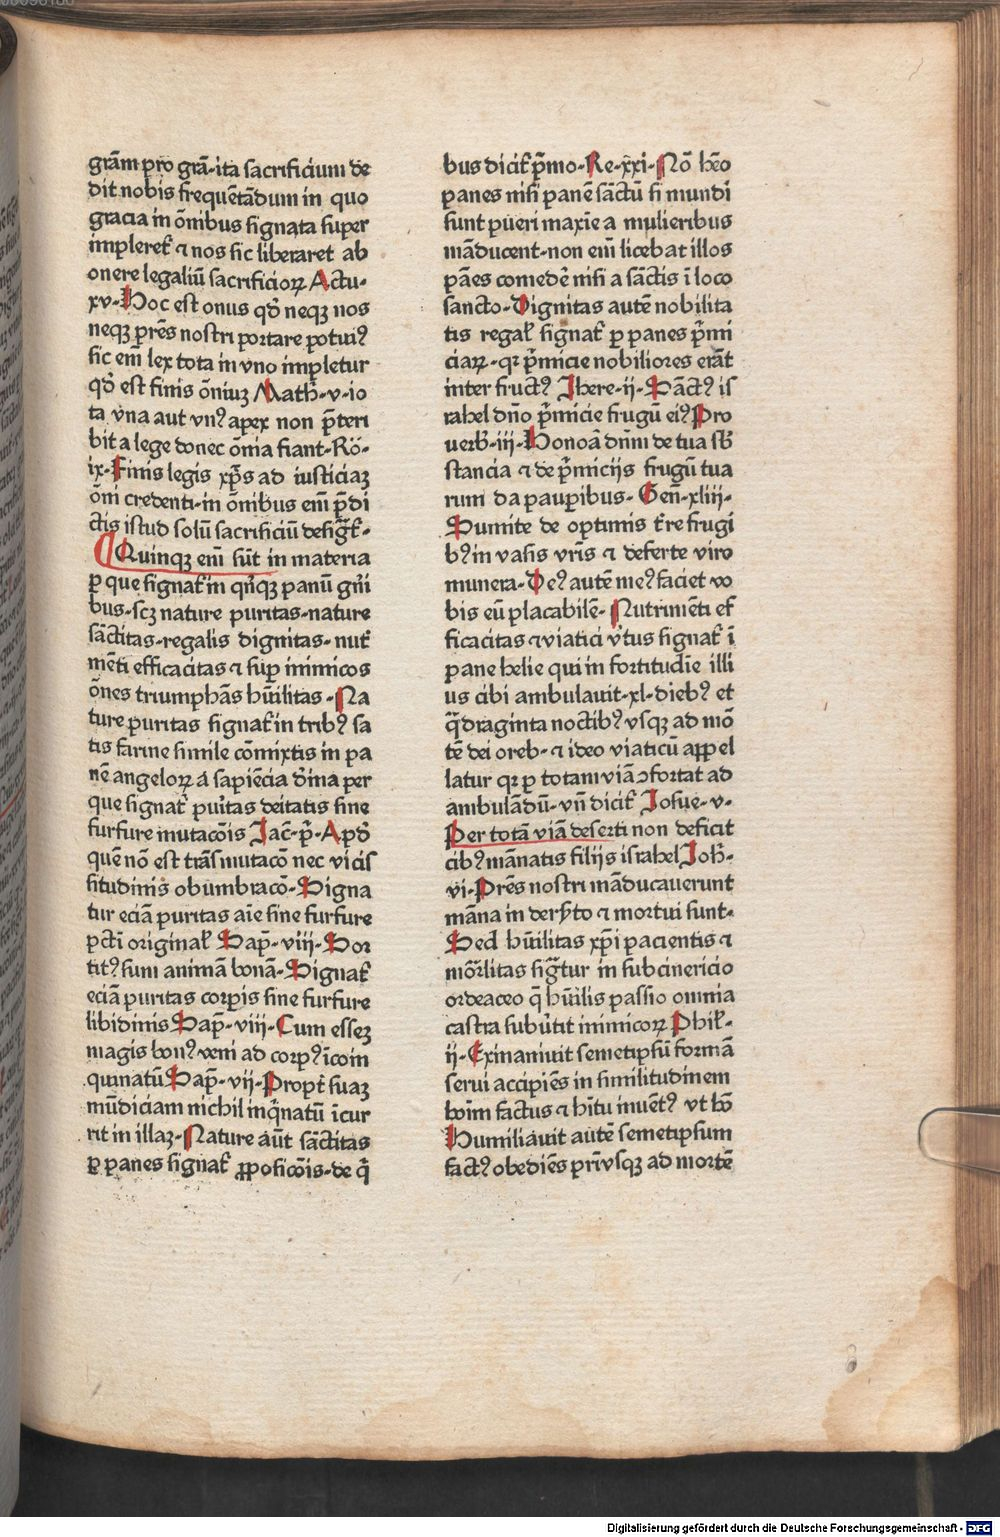 grām pro grā-ita sacrificium de
dit nobis frequētādum in quo
gracia in ōmibus signata super
impleret᷑ ⁊ nos sic liberaret ab
onere legaliū sacrificioꝝ Actu-
xv-Hoc est onus qđ neqꝫ nos
neqꝫ pr̄es nostri portare potuiꝰ
sic em̄ lex tota in vno impletur
qđ est finis ōniuꝫ Math̄-v-io
ta vna aut vnꝰ apex non p̄teri
bit a lege donec ōmia fiant-Rō-
ix-Finis legis xp̄s ad iusticiaꝫ
ōni credenti-in ōmibus em̄ p̄di
ctis istud solū sacrificiū desigt᷑-
Quinqꝫ em̄ sūt in materia
ꝑ que signat᷑ in qnqꝫ panū gn̄i
bus-scꝫ nature puritas-nature
sāctitas-regalis dignitas-nut᷑
mēti efficacitas ⁊ suꝑ inimicos
ōnes triumphās hūilitas-Na
ture puritas signat᷑ in tribꝰ sa
tis farine simile cōmixtis in pa
nē angeloꝝ a sapiēcia dīna per
que signat᷑ puītas deitatis sine
furfure mutacōis Jac̄-p̄-Apđ
quē nō est trāsmutacō nec vicis
situdinis obumbracō-Signa
tur eciā puritas aīe sine furfure
pcti original᷑ Sap̄-viii-Sor
titꝰ sum animā bonā-Signat᷑
eciā puritas corpis sine furfure
libidinis Sap̄-viii-Cum esseꝫ
magis bonꝰ veni ad corpꝰ īcoin
quinatū Sap̄-vii-Propt᷑ suaꝫ
mūdiciam nichil inqnatū īcur
rit in illaꝫ-Nature aūt sāctitas
ꝑ panes signat᷑ ꝓposicōis-de q̄
bus dicit᷑ p̄mo-Re-xxi-Nō hēo
panes nisi panē sāctū si mundi
sunt pueri maxīe a mulieribus
māducent-non em̄ licebat illos
pāes comedē nisi a sāctis ī loco
sancto-Dignitas autē nobilita
tis regal᷑ signat᷑ ꝑ panes p̄mi
ciaꝝ-qꝛ p̄micie nobiliores erāt
inter fructꝰ Jhere-ii-Sāctꝰ is
rahel dn̄o p̄micie frugū eiꝰ Pro
uerb̄-iii-Honoā dn̄m de tua sb̄
stancia ⁊ de p̄miciis frugū tua
rum da pauꝑibus-Gen̄-xliii-
Sumite de optimis tre frugi
bꝰ in vasis vr̄is ⁊ deferte viro
munera-Deꝰ autē meꝰ faciet vo
bis eū placabilē-Nutrimēti ef
ficacitas ⁊ viatici vt̄us signat᷑ ī
pane helie qui in fortitudīe illi
us cibi ambulauit-xl-diebꝰ et
q̄draginta noctibꝰ vsqꝫ ad mō
tē dei oreb-⁊ ideo viaticū appel
latur qꝛ ꝑ totam viā ↄfortat ad
ambulādū-vn̄ dicit᷑ Josue-v-
Per totā viā deserti non deficit
cibꝰ mānatis filijs israhel Joh̄-
vi-Pr̄es nostri māducauerunt
māna in derto ⁊ mortui sunt-
Sed hūilitas xp̄i pacientis ⁊
mōrlitas sigtur in subcinericio
ordeaceo q̄ hūilis passio omnia
castra subūtit inimicoꝝ Phil᷑-
ii-Exinaniuit semetipsū formā
serui accipiēs in similitudinem
hoīm factus ⁊ hītu inuētꝰ vt hō
Humiliauit autē semetipsum
factꝰ obediēs prī vsqꝫ ad mortē
Digitalisierung gefördert durch die Deutsche Forschungsgemeinschaft - DFG